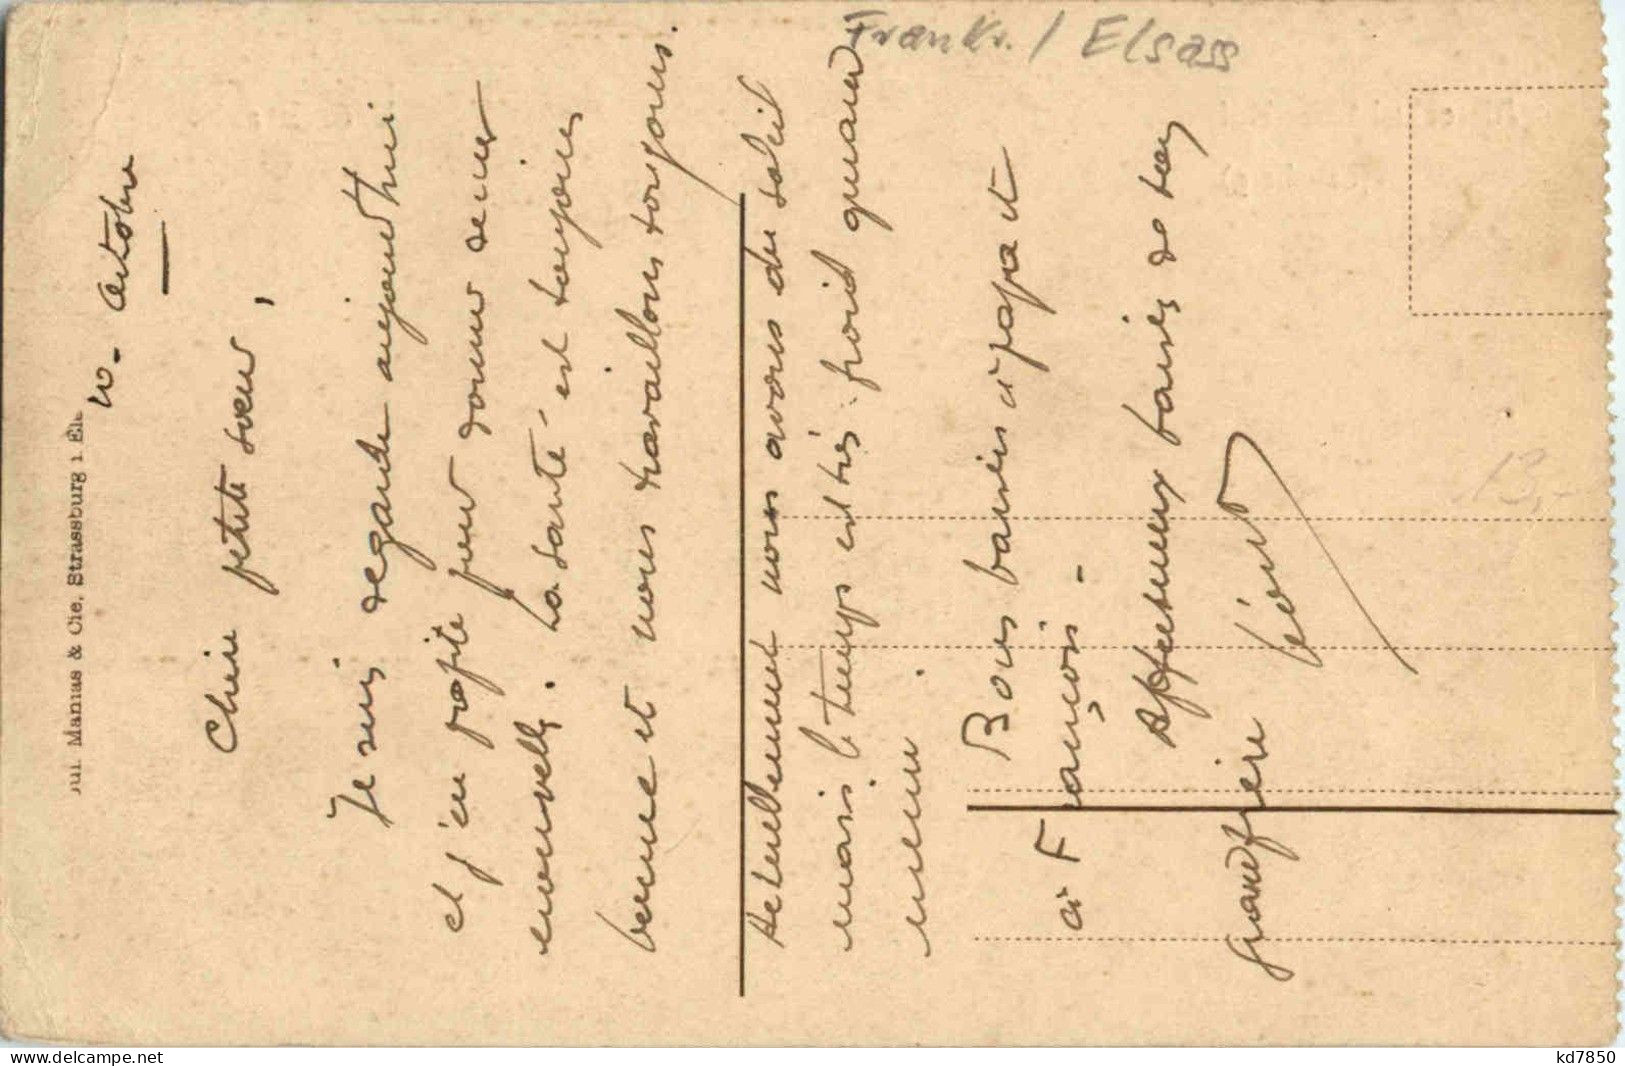 Frankr. / Elsass
Jul. Manias & Cie, Strassburg i Els
10 - Octobre
Chère petite soeur,
Je suis de garde aujourd'hui
et j'en profite pour donner de mes
nouvelles. La santé est toujours
bonne et nous travaillons toujours.
Actuellement nous avons du soleil
mais le temps est très froid quand
même.
Bons baisers à papa et
à François -
Affectueux baisers de ton
grand frère
13,-
www.delcampe.net
kd7850